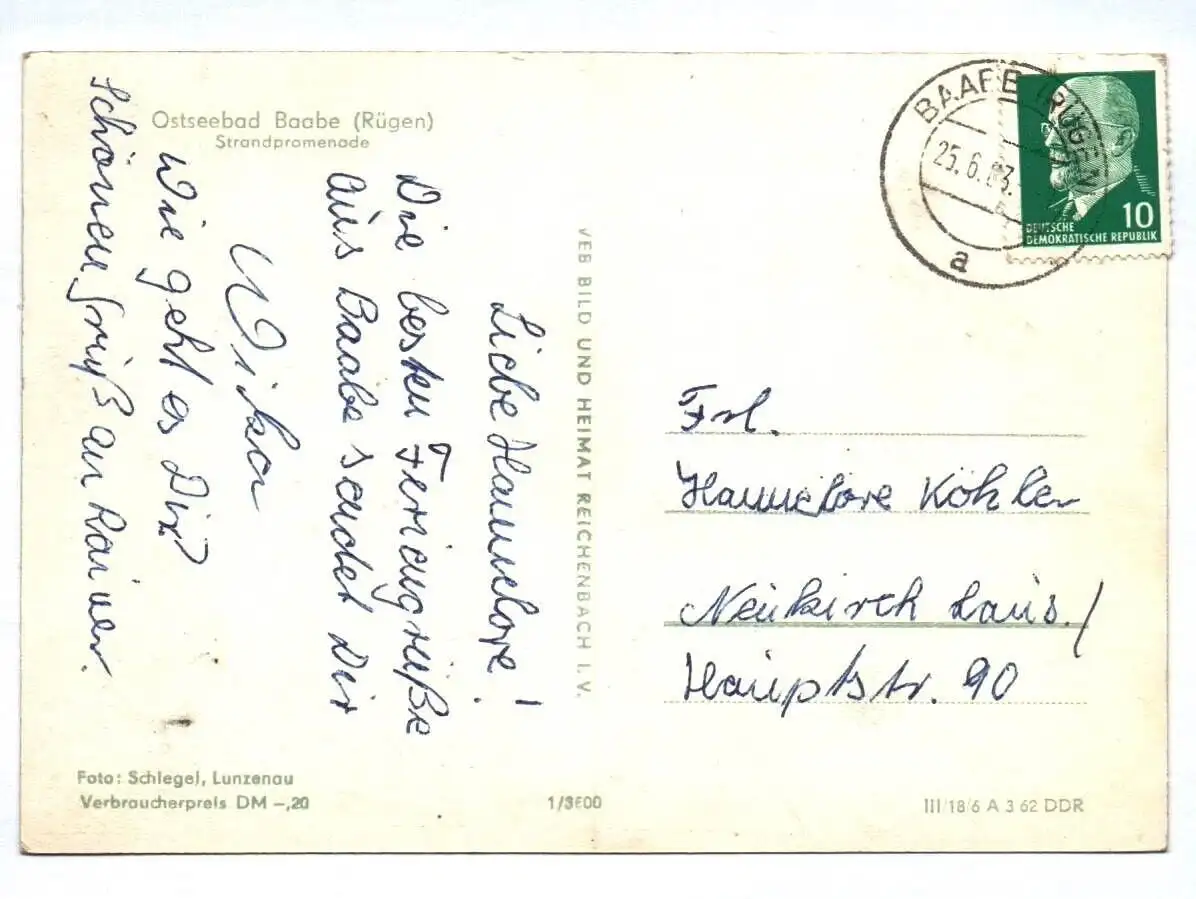 Ostseebad Baabe (Rügen)
Strandpromenade
Liebe Hannelore!
Die besten Feriengrüße
aus Baabe sendet Dir
Wie geht es Dir?
Schönen Gruß an Rainer.
VEB BILD UND HEIMAT REICHENBACH I. V.
BAABE (RÜGEN)
25.6.63.
a
10
DEUTSCHE
DEMOKRATISCHE REPUBLIK
Frl.
Hannelore Köhler
Neukirch Laus./
Hauptstr. 90
Foto: Schlegel, Lunzenau
Verbraucherpreis DM –,20
1/3600
III/18/6 A 3 62 DDR